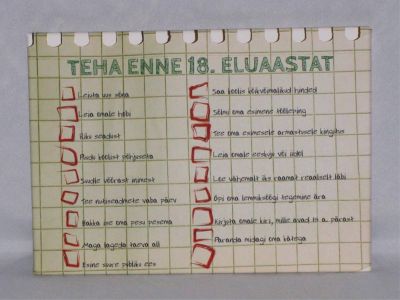 TEHA ENNE 18. ELUAASTAT
Leiuta uus sõna
Leia omale hobi
Riku seadust
Puudu koolist põhjuseta
Suudle võõrast inimest
Tee nutiseadmete vaba päev
Hakka ise oma pesu pesema
Maga lageda taeva all
Esine suure publiku ees
Saa koolis kõikvõimalikud hinded
Sõlmi oma esimene tööleping
Tee oma esimesele armastusele kingitus
Leia omale eeskuju või iidol
Loe vähemalt üks raamat reaalselt läbi
Õpi oma lemmiktoidu tegemine ära
Kirjuta omale kiri, mille avad 10 a. pärast
Paranda midagi oma kätega